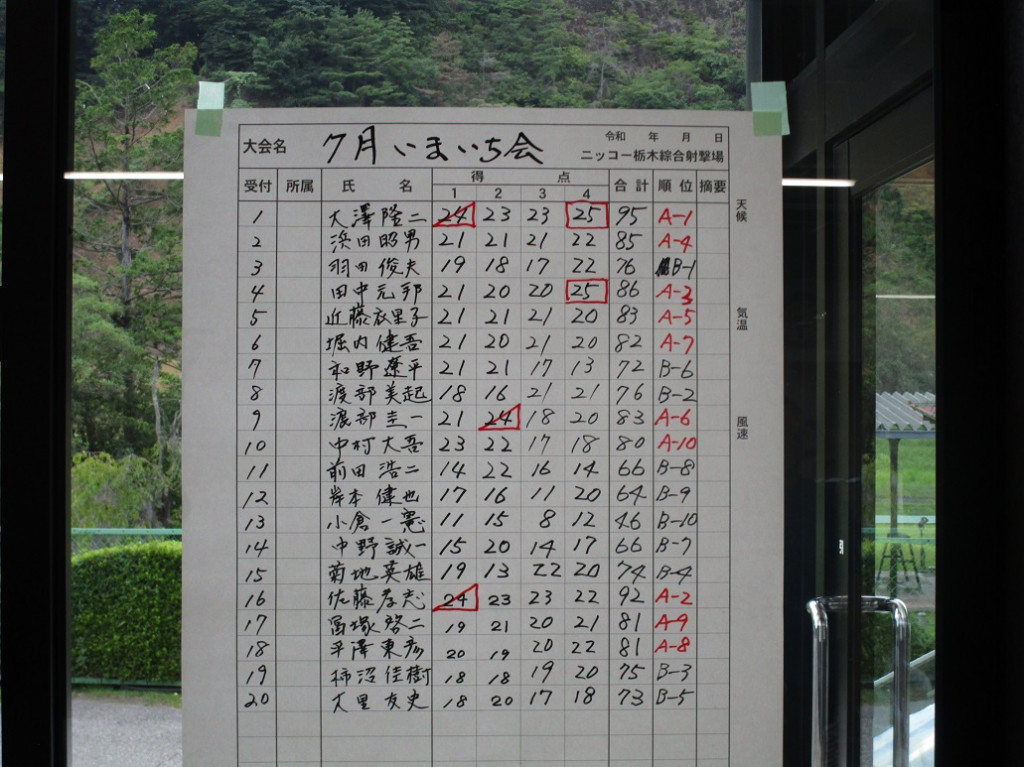 大会名 7月いまいち会 令和 年 月 日
ニッコー栃木綜合射撃場
受付 所属 氏名 得点 合計 順位 摘要
1 2 3 4
1 大澤隆二 24 23 23 25 95 A-1
2 浜田昭男 21 21 21 22 85 A-4
3 羽田俊夫 19 18 17 22 76 B-1
4 田中元邦 21 20 20 25 86 A-3
5 近藤衣里子 21 21 21 20 83 A-5
6 堀内健吾 21 20 21 20 82 A-7
7 和野遼平 21 21 17 13 72 B-6
8 渡部美起 18 16 21 21 76 B-2
9 渡部圭一 21 24 18 20 83 A-6
10 中村大吾 23 22 17 18 80 A-10
11 前田浩二 14 22 16 14 66 B-8
12 岸本健也 17 16 11 20 64 B-9
13 小倉一憲 11 15 8 12 46 B-10
14 中野誠一 15 20 14 17 66 B-7
15 菊地英雄 19 13 22 20 74 B-4
16 佐藤孝志 24 23 23 22 92 A-2
17 冨塚啓二 19 21 20 21 81 A-9
18 平澤東彦 20 19 20 22 81 A-8
19 柿沼佳樹 18 18 19 20 75 B-3
20 大里友史 18 20 17 18 73 B-5
天候
気温
風速